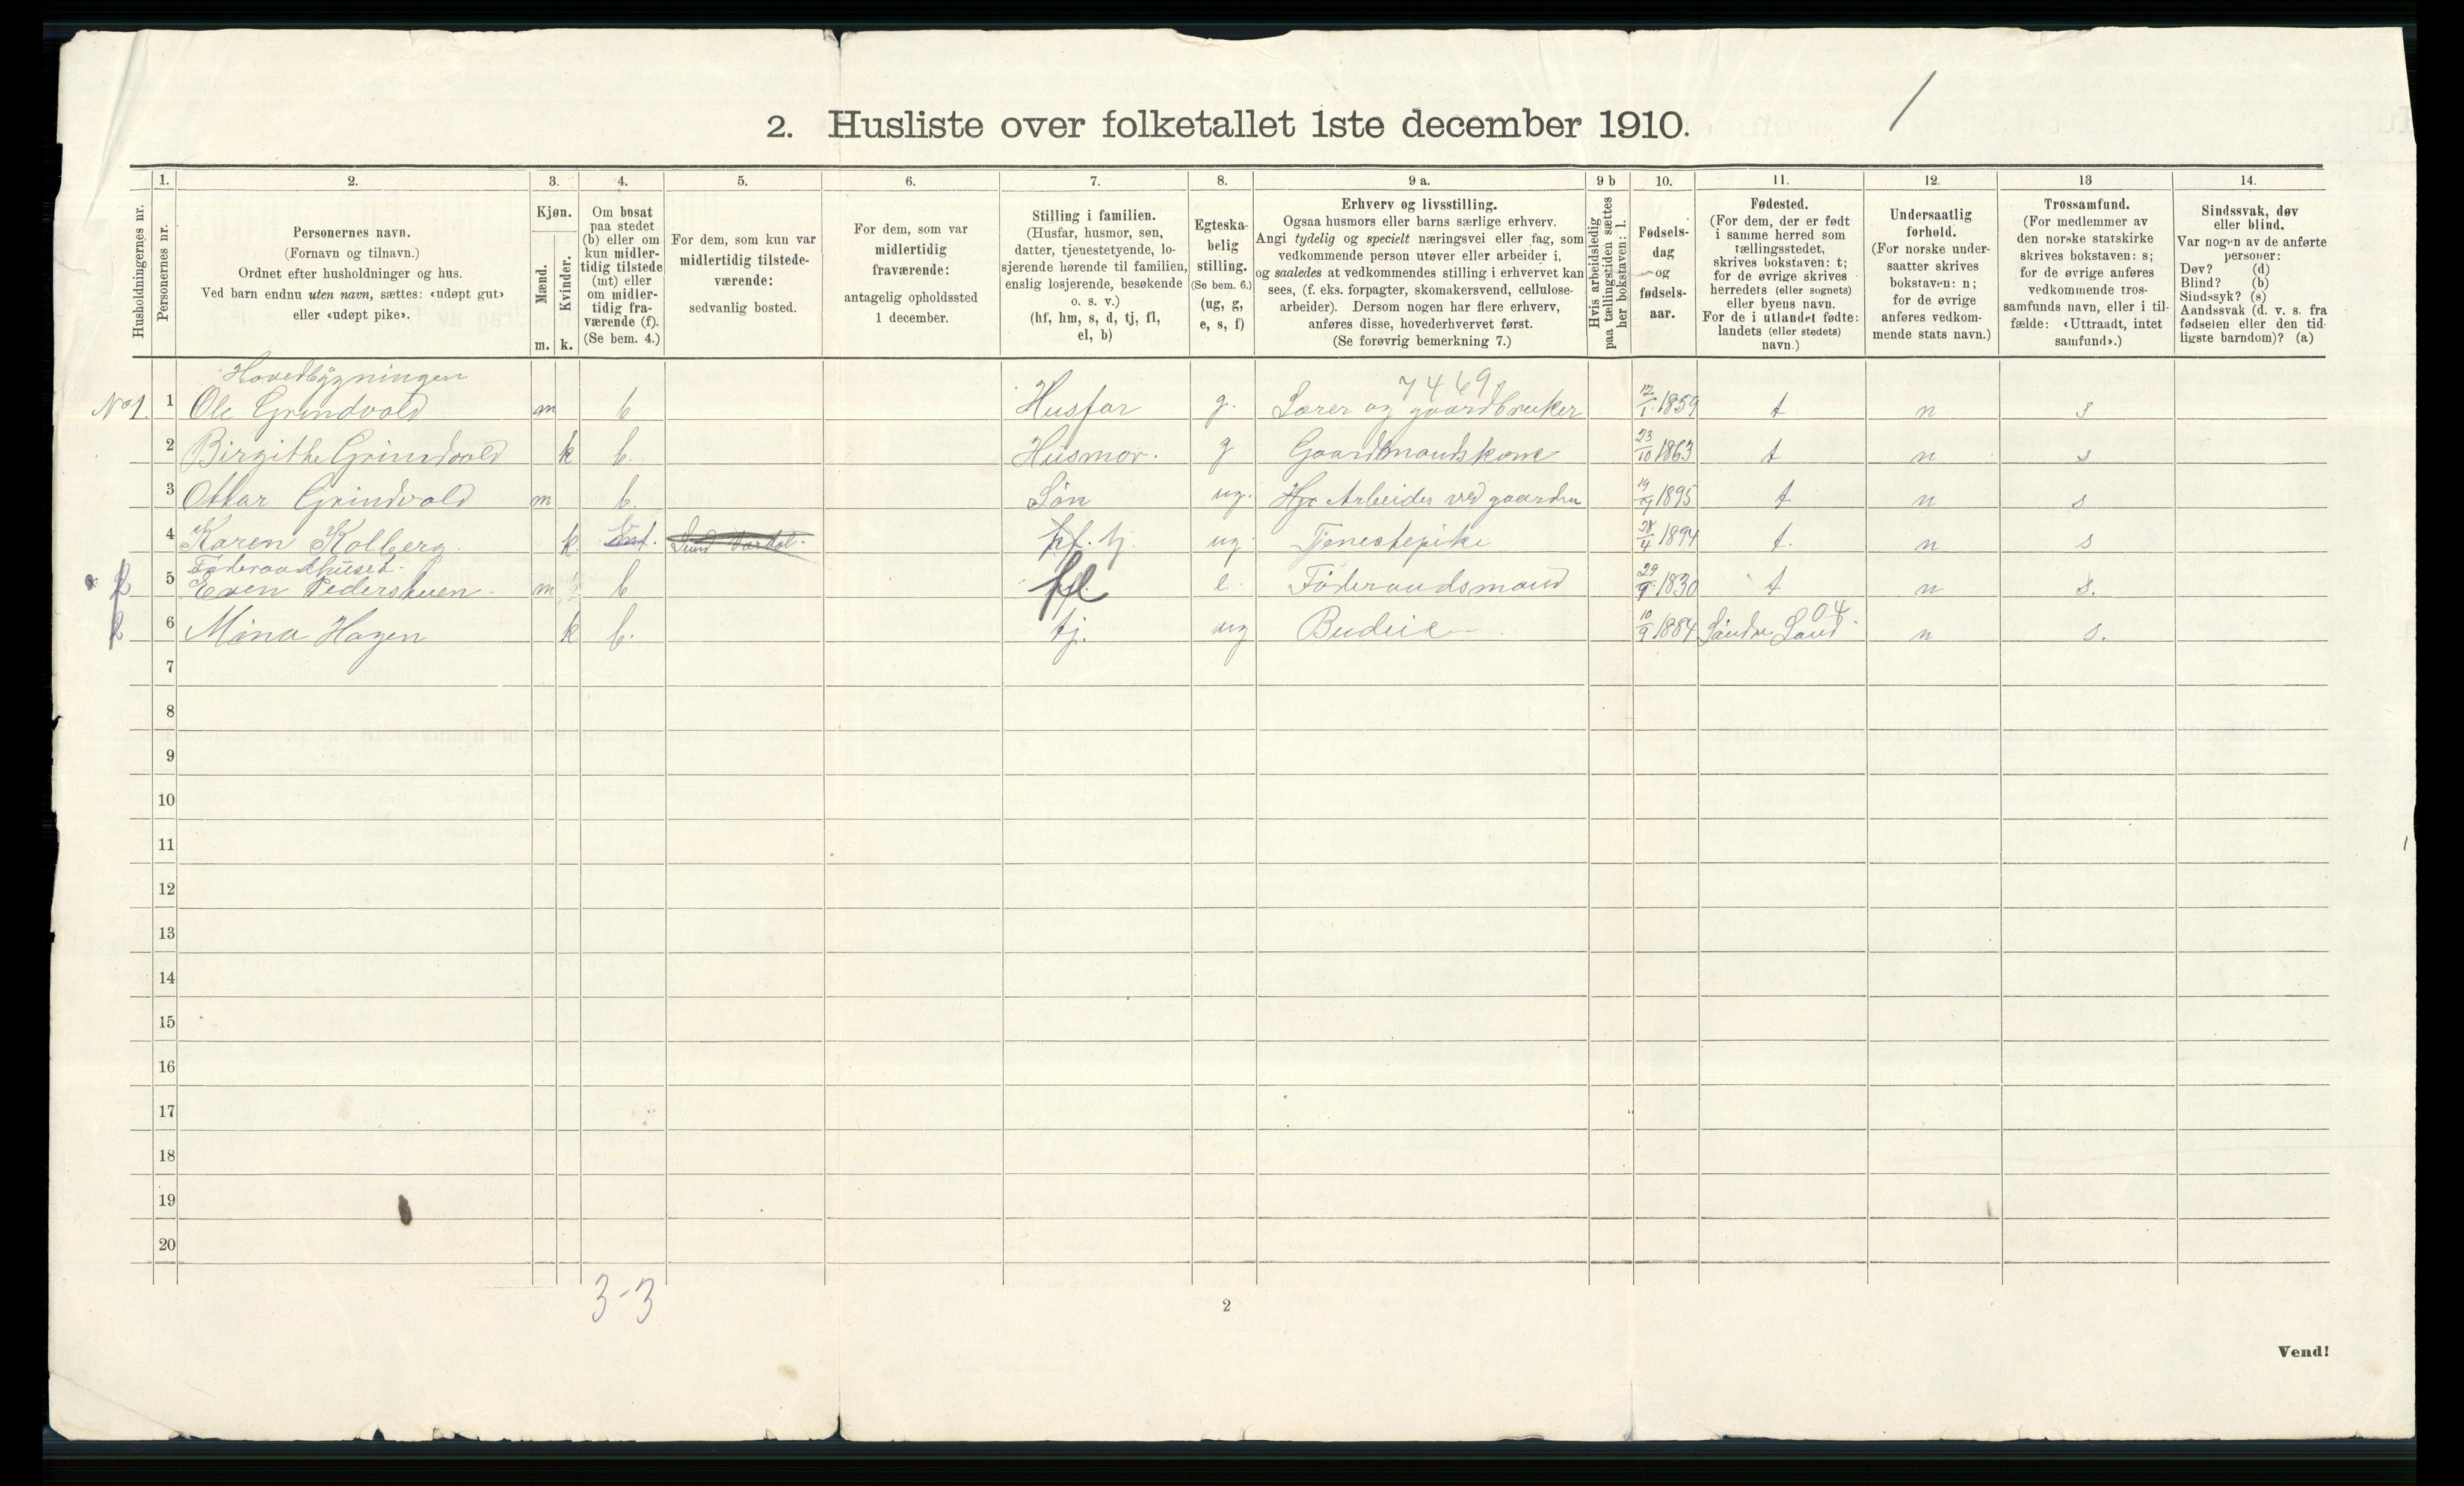 2. Husliste over folketallet 1ste december 1910.
/
Husholdningernes nr.
1.
Personernes nr.
2.
Personernes navn.
(Fornavn og tilnavn.)
Ordnet efter husholdninger og hus.
Ved barn endnu uten navn, sættes: «udøpt gut»
eller «udøpt pike».
3.
Kjøn.
Mænd.
Kvinder.
m. k.
4.
Om bosat
paa stedet
(b) eller om
kun midler-
tidig tilstede
(mt) eller
om midler-
tidig fra-
værende (f).
(Se bem. 4.)
5.
For dem, som kun var
midlertidig tilstede-
værende:
sedvanlig bosted.
6.
For dem, som var
midlertidig
fraværende:
antagelig opholdssted
1 december.
7.
Stilling i familien.
(Husfar, husmor, søn,
datter, tjenestetyende, lo-
sjerende hørende til familien,
enslig losjerende, besøkende
o. s. v.)
(hf, hm, s, d, tj, fl,
el, b)
8.
Egteska-
belig
stilling.
(Se bem. 6.)
(ug, g,
e, s, f)
9 a.
Erhverv og livsstilling.
Ogsaa husmors eller barns særlige erhverv.
Angi tydelig og specielt næringsvei eller fag, som
vedkommende person utøver eller arbeider i,
og saaledes at vedkommendes stilling i erhvervet kan
sees, (f. eks. forpagter, skomakersvend, cellulose-
arbeider). Dersom nogen har flere erhverv,
anføres disse, hovederhvervet først.
(Se forøvrig bemerkning 7.)
9 b
Hvis arbeidsledig
paa tællingstiden sættes
her bokstaven: l.
10.
Fødsels-
dag
og
fødsels-
aar.
11.
Fødested.
(For dem, der er født
i samme herred som
tællingsstedet,
skrives bokstaven: t;
for de øvrige skrives
herredets (eller sognets)
eller byens navn.
For de i utlandet fødte:
landets (eller stedets)
navn.)
12.
Undersaatlig
forhold.
(For norske under-
saatter skrives
bokstaven: n;
for de øvrige
anføres vedkom-
mende stats navn.)
13
Trossamfund.
(For medlemmer av
den norske statskirke
skrives bokstaven: s;
for de øvrige anføres
vedkommende tros-
samfunds navn, eller i til-
fælde: «Uttraadt, intet
samfund».)
14.
Sindssvak, døv
eller blind.
Var nogen av de anførte
personer:
Døv? (d)
Blind? (b)
Sindssyk? (s)
Aandssvak (d. v. s. fra
fødselen eller den tid-
ligste barndom)? (a)
Hovedbygningen
7469
No 1. 1 Ole Grindvold m b Husfar g. Lærer og gaardbruker 12/1 1859 t n s
2 Birgithe Grindvold k b. Husmor. g Gaardmandskone 23/10 1863 t n s
3 Ottar Grindvold m b. Søn ug. Arbeider ved gaarden 1895 t n s
4 Karen Kolberg k tj. ug Tjenestepike 28/4 1894 t. n s
Føderaadhuset.
5 Even Pedershuen m b fl e Føderaadsmand 29/9 1830 t n s.
04
6 Mina Hagen k b. tj. ug Budeie 10/9 1884 Søndre Land n s.
7
8
9
10
11
12
13
14
15
16
17
18
19
20
3-3
2
Vend!